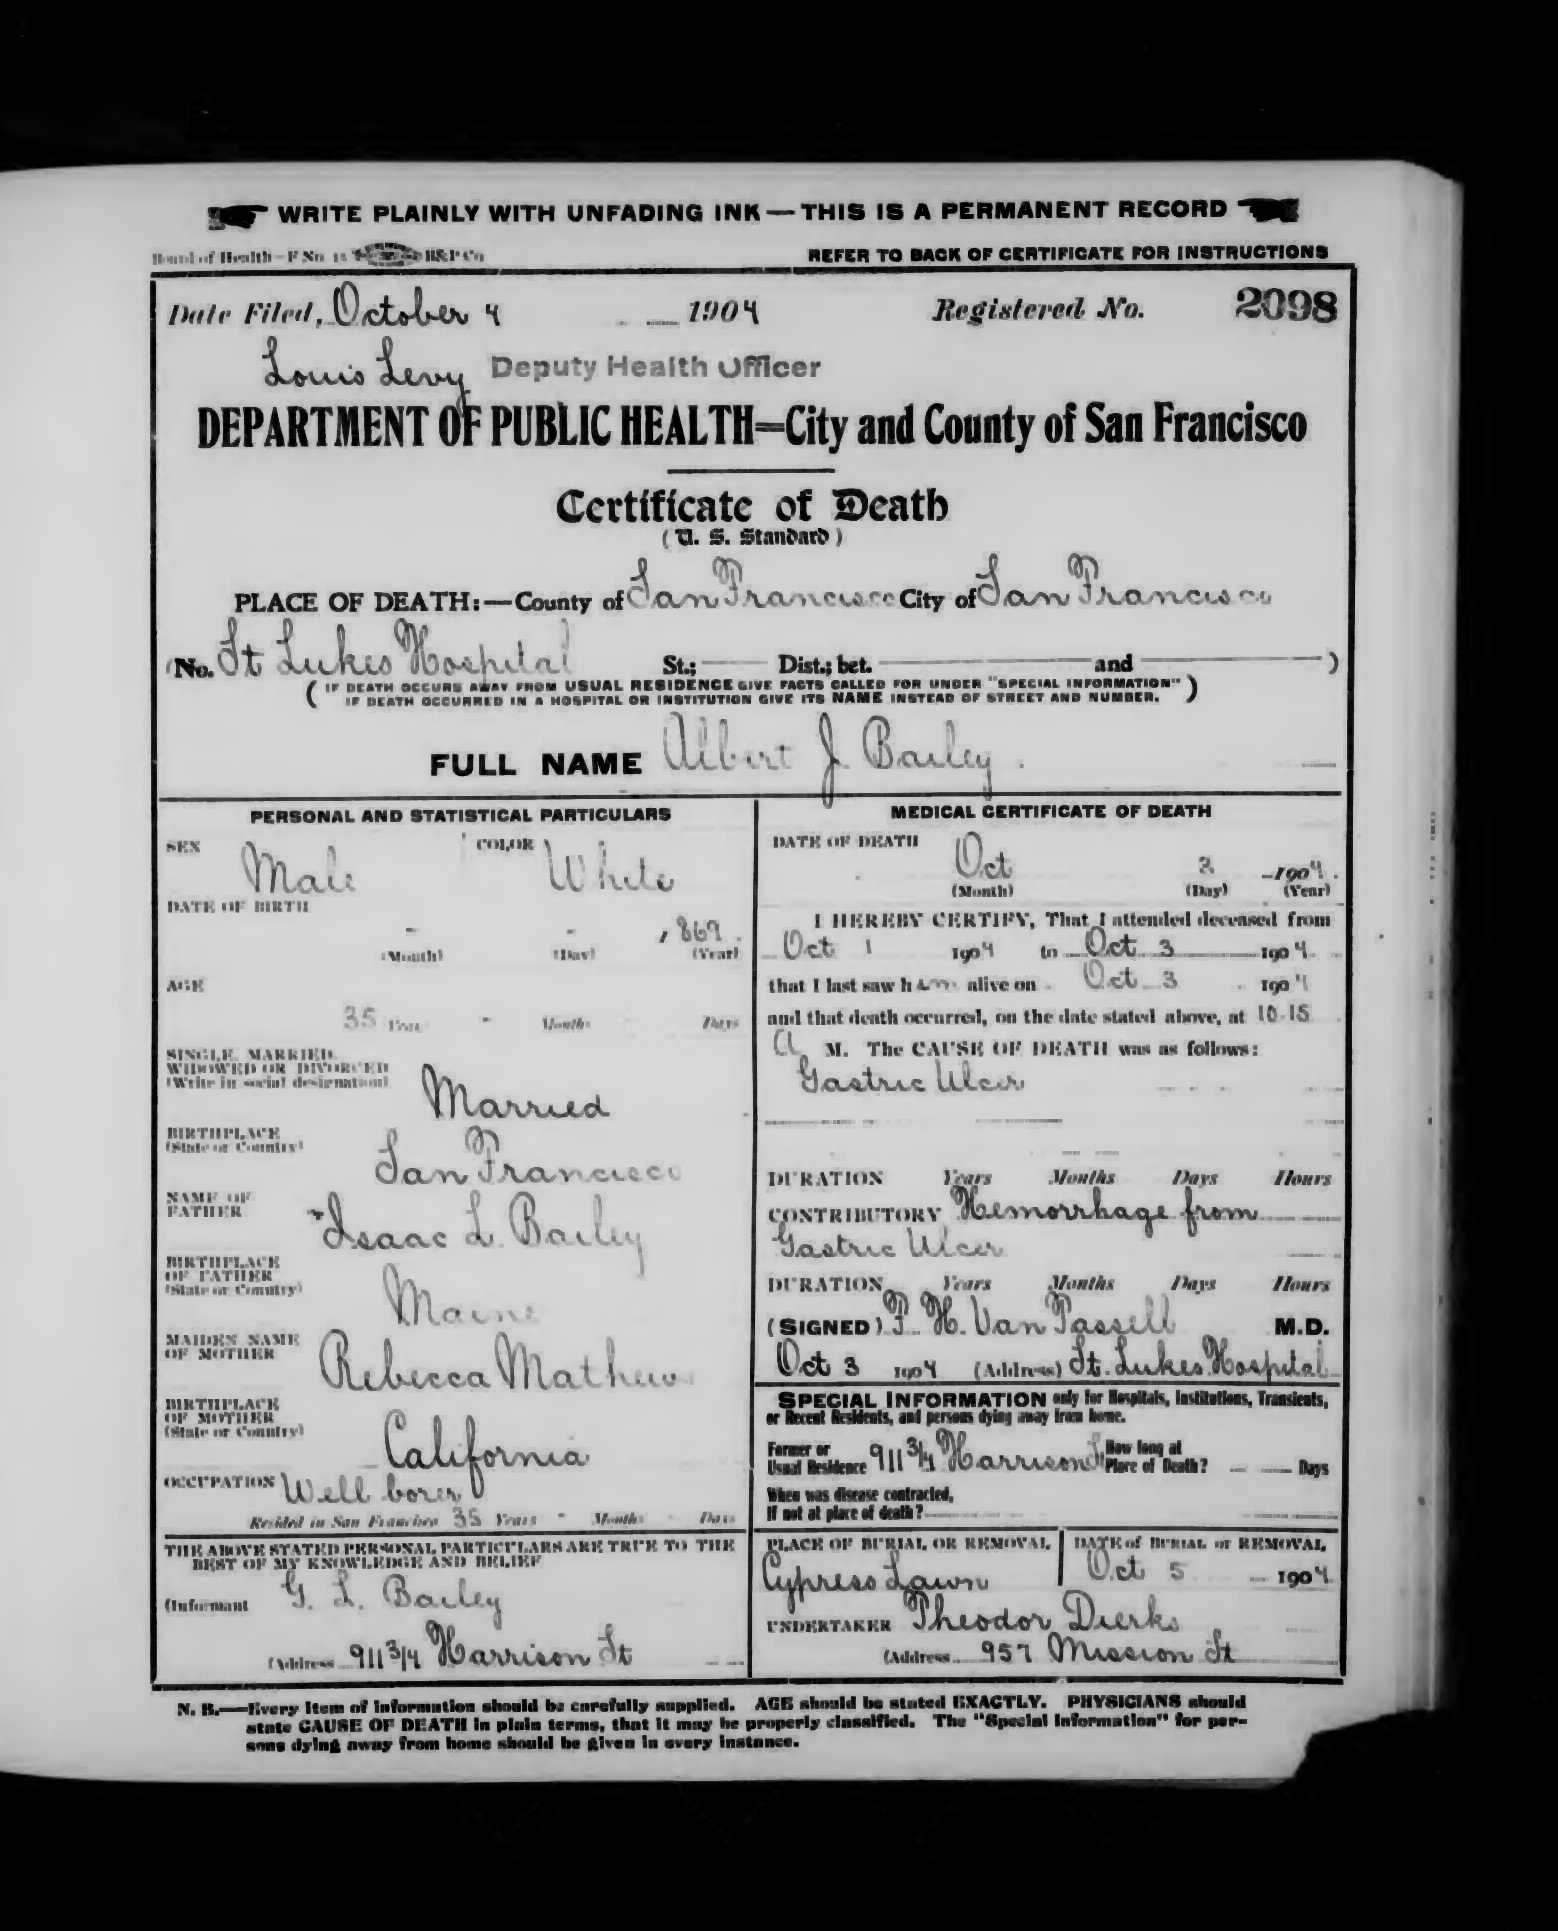 WRITE PLAINLY WITH UNFADING INK — THIS IS A PERMANENT RECORD
Board of Health—F No. 15 H&P Co
REFER TO BACK OF CERTIFICATE FOR INSTRUCTIONS
Date Filed, October 4 1904 Registered No. 2098
Louis Levy Deputy Health Officer
DEPARTMENT OF PUBLIC HEALTH=City and County of San Francisco
Certificate of Death
(U. S. Standard)
PLACE OF DEATH:—County of San Francisco City of San Francisco
(No. St Lukes Hospital St.; Dist.; bet. and )
(IF DEATH OCCURS AWAY FROM USUAL RESIDENCE GIVE FACTS CALLED FOR UNDER "SPECIAL INFORMATION"
IF DEATH OCCURRED IN A HOSPITAL OR INSTITUTION GIVE ITS NAME INSTEAD OF STREET AND NUMBER.)
FULL NAME Albert J. Bailey
PERSONAL AND STATISTICAL PARTICULARS
SEX Male COLOR White
DATE OF BIRTH
- - , 869
(Month) (Day) (Year)
AGE
35 Years - Months Days
SINGLE, MARRIED,
WIDOWED OR DIVORCED
(Write in social designation)
Married
BIRTHPLACE
(State or Country)
San Francisco
NAME OF
FATHER
Isaac L. Bailey
BIRTHPLACE
OF FATHER
(State or Country)
Maine
MAIDEN NAME
OF MOTHER
Rebecca Mathews
BIRTHPLACE
OF MOTHER
(State or Country)
California
OCCUPATION Well borer
Resided in San Francisco 35 Years - Months - Days
THE ABOVE STATED PERSONAL PARTICULARS ARE TRUE TO THE
BEST OF MY KNOWLEDGE AND BELIEF
(Informant G. L. Bailey
(Address 911 3/4 Harrison St
MEDICAL CERTIFICATE OF DEATH
DATE OF DEATH
Oct 3 1904.
(Month) (Day) (Year)
I HEREBY CERTIFY, That I attended deceased from
Oct 1 1904 to Oct 3 1904
that I last saw him alive on Oct 3 1904
and that death occurred, on the date stated above, at 10-15
A M. The CAUSE OF DEATH was as follows:
Gastric Ulcer
DURATION Years Months Days Hours
CONTRIBUTORY Hemorrhage from
Gastric Ulcer
DURATION Years Months Days Hours
(SIGNED) P. H. Van Passell M.D.
Oct 3 1904 (Address) St. Lukes Hospital
SPECIAL INFORMATION only for Hospitals, Institutions, Transients,
or Recent Residents, and persons dying away from home.
Former or
Usual Residence 911 3/4 Harrison St
How long at
Place of Death? Days
When was disease contracted,
If not at place of death?
PLACE OF BURIAL OR REMOVAL
Cypress Lawn
DATE of BURIAL or REMOVAL
Oct 5 1904
UNDERTAKER Theodor Dierks
(Address 957 Mission St
N. B.—Every item of information should be carefully supplied. AGE should be stated EXACTLY. PHYSICIANS should
state CAUSE OF DEATH in plain terms, that it may be properly classified. The "Special Information" for per-
sons dying away from home should be given in every instance.